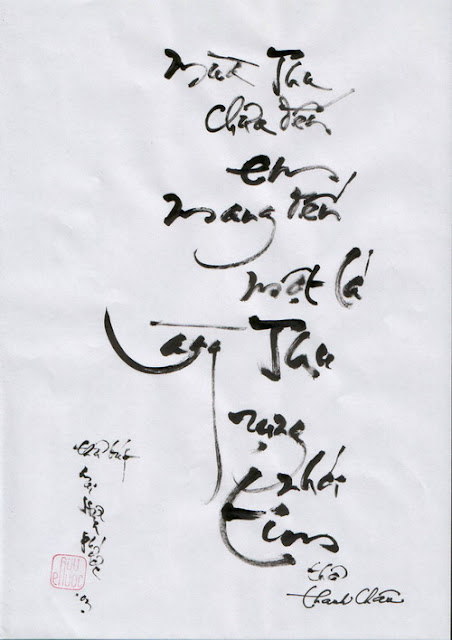 mùa Thu
chưa đến
em
mang đến
một lá
vàng Thu
rụng
nhói
tim
thơ
Thanh Châu
thư bút
HUU
PHUOC